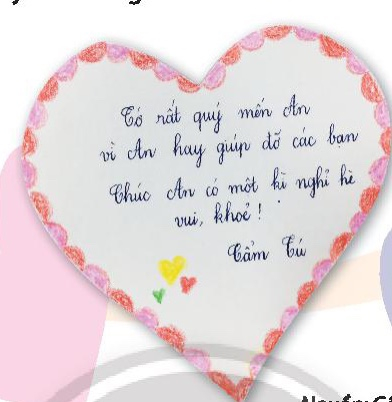 Tớ rất quý mến An
vì An hay giúp đỡ các bạn
Chúc An có một kì nghỉ hè
vui, khoẻ !
Cẩm Tú